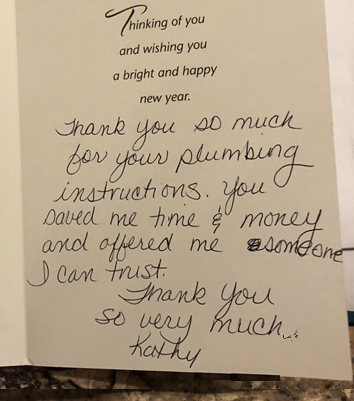 Thinking of you
and wishing you
a bright and happy
new year.
Thank you so much
for your plumbing
instructions. You
saved me time & money
and offered me someone
I can trust.
Thank You
so very much...
Kathy